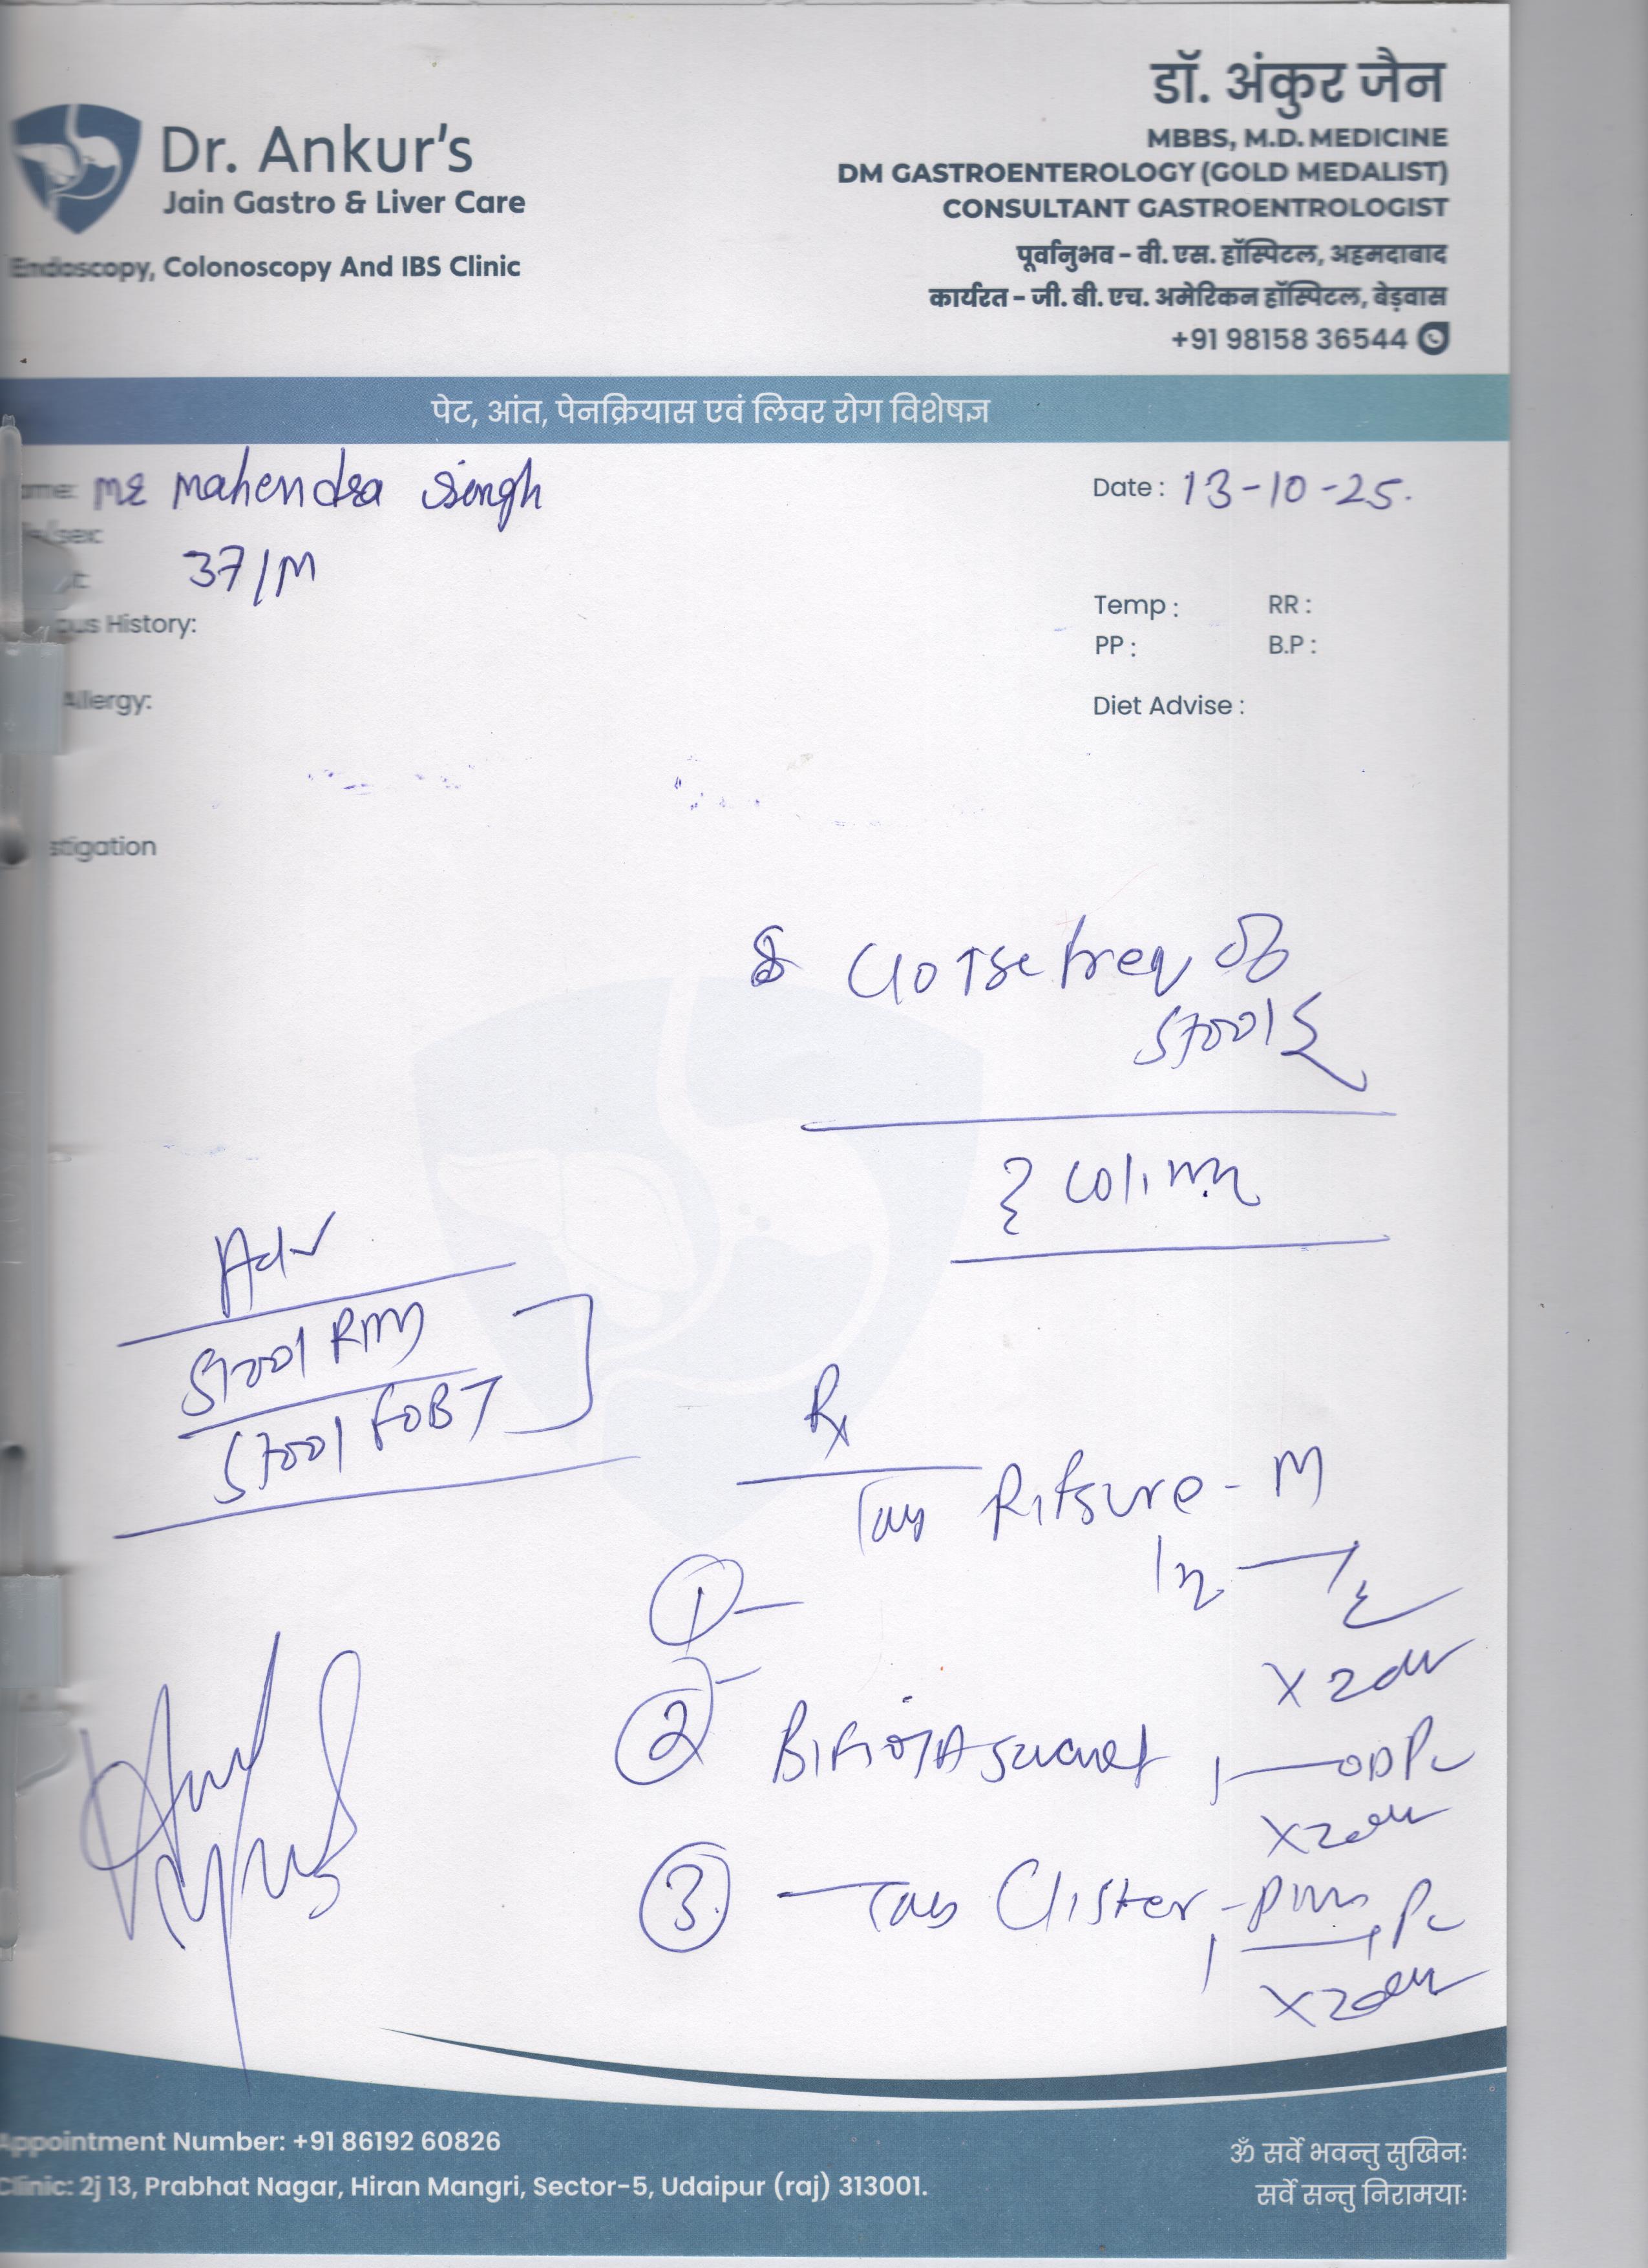 डॉ. अंकुर जैन
MBBS, M.D. MEDICINE
DM GASTROENTEROLOGY (GOLD MEDALIST)
CONSULTANT GASTROENTROLOGIST
पूर्वानुभव - वी. एस. हॉस्पिटल, अहमदाबाद
कार्यरत - जी. बी. एच. अमेरिकन हॉस्पिटल, बेड़वास
+91 98158 36544
Dr. Ankur's
Jain Gastro & Liver Care
Endoscopy, Colonoscopy And IBS Clinic
पेट, आंत, पेनक्रियास एवं लिवर रोग विशेषज्ञ
ame: Mr Mahendra Singh
Date : 13-10-25.
/sex:
37/M
t:
Temp : RR :
ous History:
PP : B.P :
Allergy:
Diet Advise :
stigation
freq of
stools
Adv
Stool RM
Stool FOBT
Rx
Tab Rifsure - M
1-
2-
x 2
sachet 1 — OD Pc
x 2
3 Tab Clister - Pc
1
x 2
Appointment Number: +91 86192 60826
Clinic: 2j 13, Prabhat Nagar, Hiran Mangri, Sector-5, Udaipur (raj) 313001.
ॐ सर्वे भवन्तु सुखिनः
सर्वे सन्तु निरामयाः